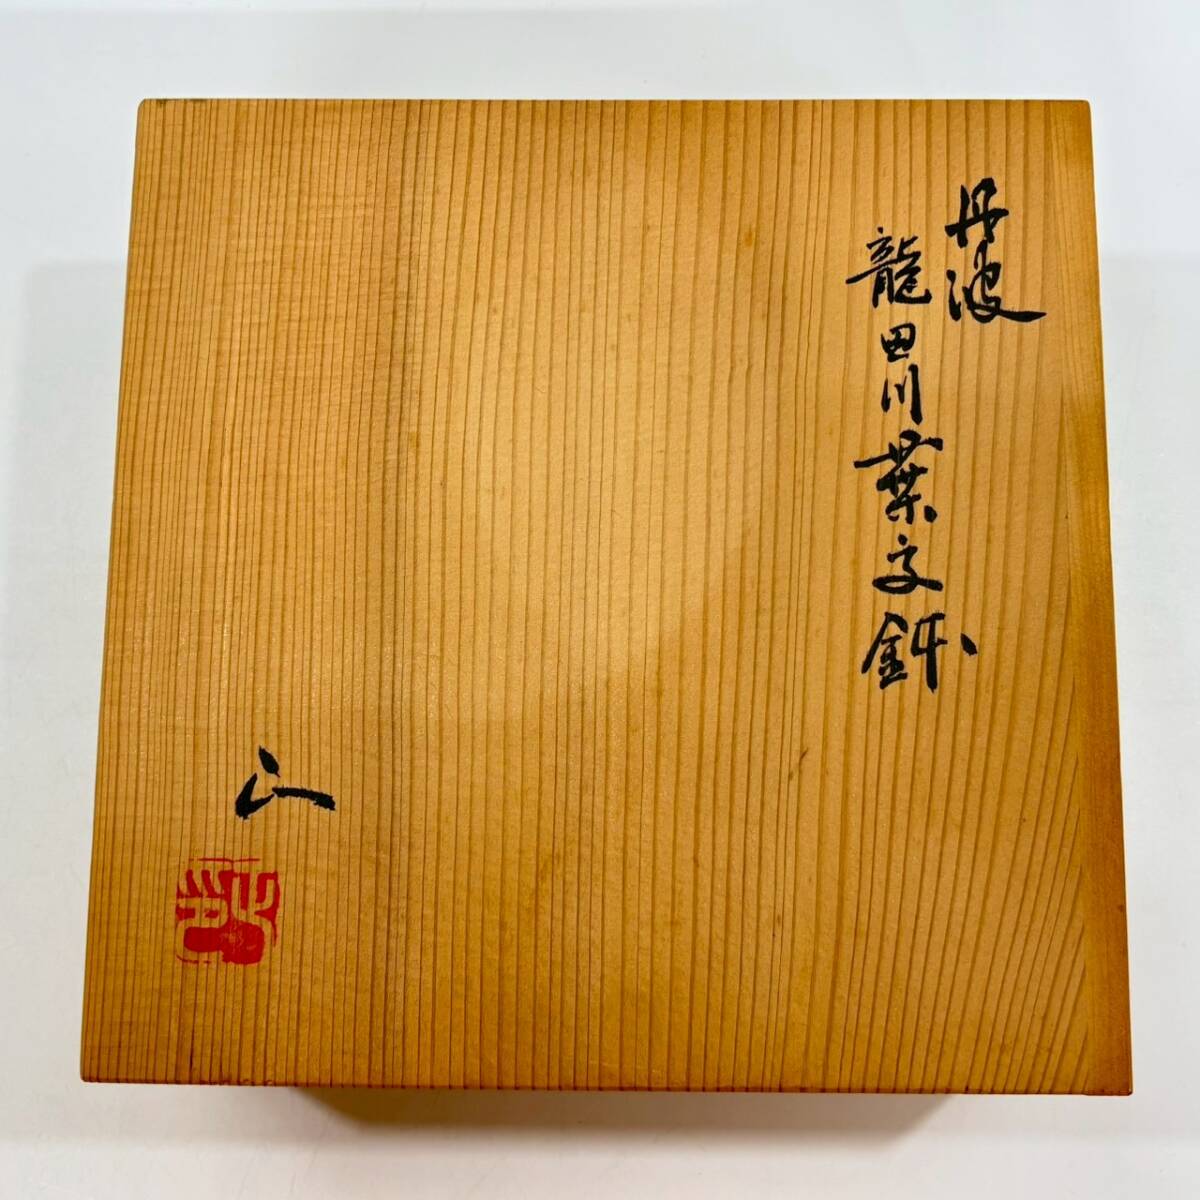 丹波
龍田川葉文鉢